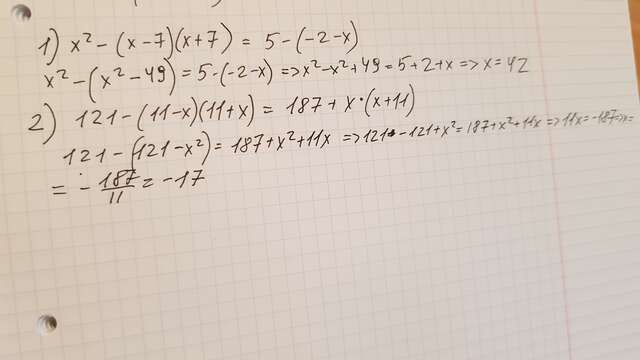 1) x² - (x-7)(x+7) = 5 - (-2-x)
x² - (x² - 49) = 5 - (-2-x) => x² - x² + 49 = 5 + 2 + x => x = 42
2) 121 - (11-x)(11+x) = 187 + x·(x+11)
121 - (121 - x²) = 187 + x² + 11x => 121 - 121 + x² = 187 + x² + 11x => 11x = -187 => x =
= - 187/11 = -17